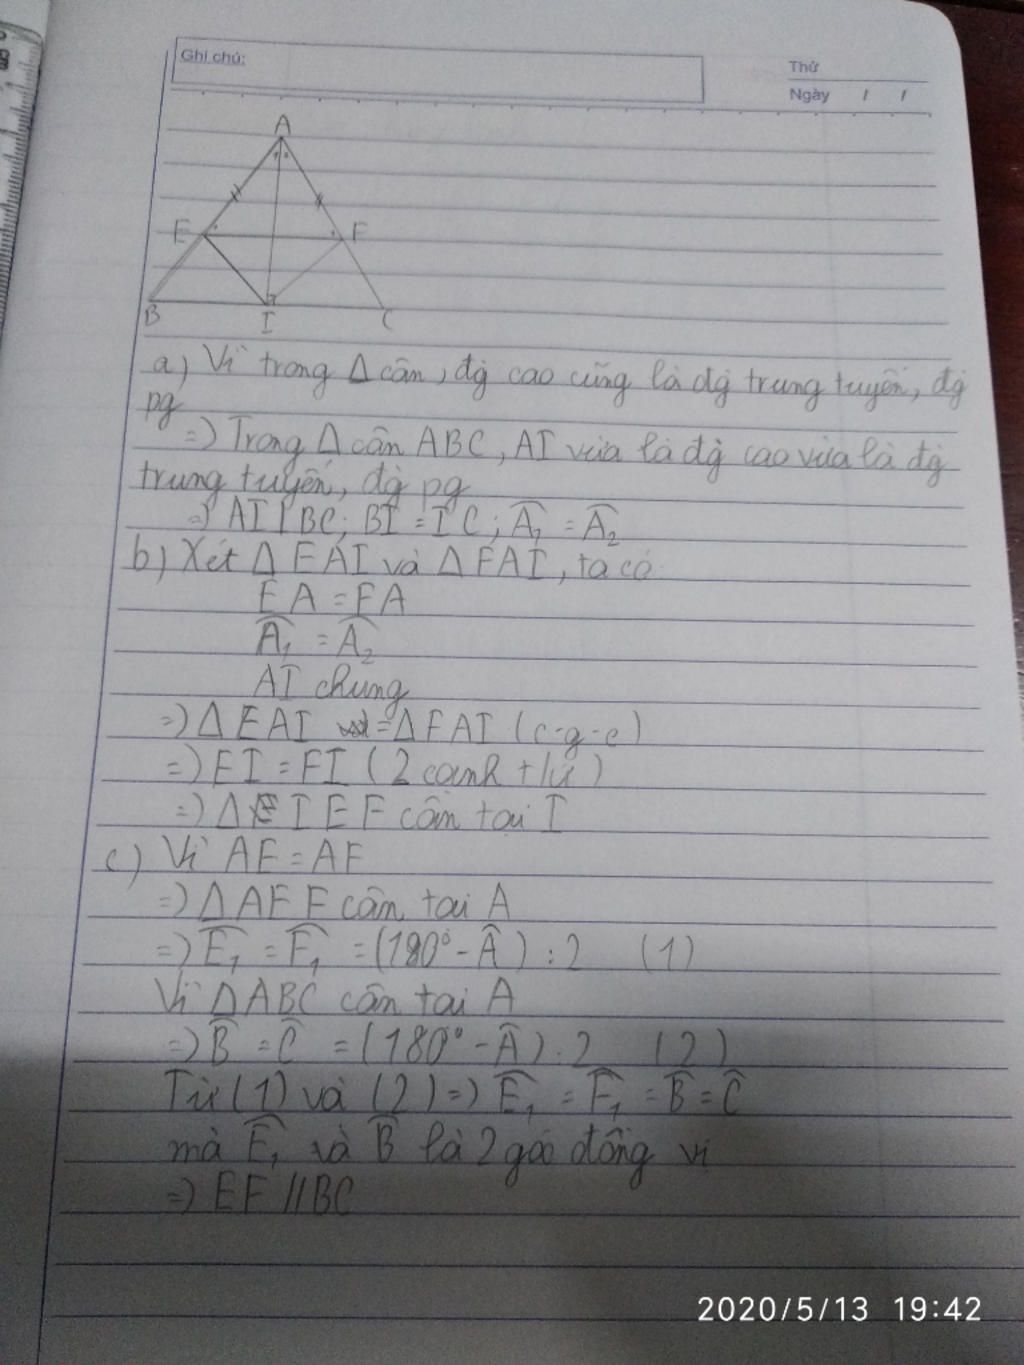 Ghi chú:
Thứ
Ngày / /
A
E F
B I C
a) Vì trong Δ cân, đg cao cũng là đg trung tuyến, đg
pg
=) Trong Δ cân ABC, AI vừa là đg cao vừa là đg
trung tuyến, đg pg
=) AI ⊥ BC; BI = IC; Â₁ = Â₂
b) Xét Δ EAI và Δ FAI, ta có
EA = FA
Â₁ = Â₂
AI chung
=) Δ EAI = Δ FAI (c-g-c)
=) EI = FI (2 cạnh t/ứ)
=) Δ IEF cân tại I
c) Vì AE = AF
=) Δ AEF cân tại A
=) Ê₁ = F̂₁ = (180° - Â) : 2 (1)
Vì Δ ABC cân tại A
=) B̂ = Ĉ = (180° - Â) : 2 (2)
Từ (1) và (2) =) Ê₁ = F̂₁ = B̂ = Ĉ
mà Ê₁ và B̂ là 2 góc đồng vị
=) EF // BC
2020/5/13 19:42